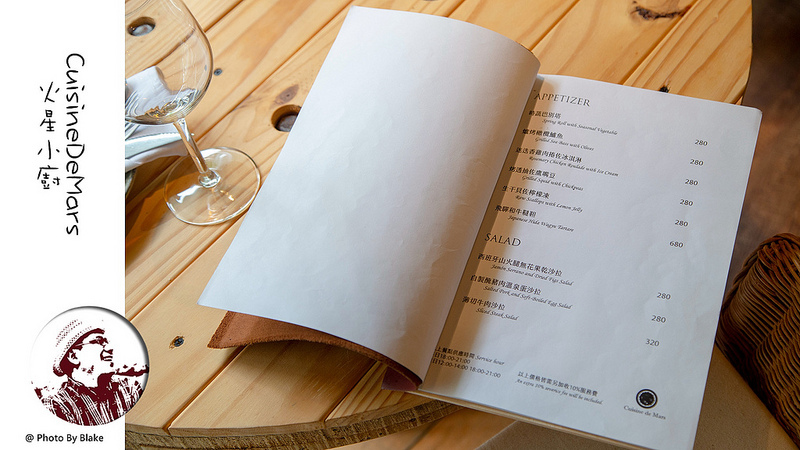 CuisineDeMars
火星小廚
@ Photo By Blake
APPETIZER
Spring Roll with Seasonal Vegetable
280
爐烤橄欖鱸魚
Grilled Sea Bass with Olives
280
迷迭香雞肉捲佐冰淇淋
Rosemary Chicken Roulade with Ice Cream
280
烤透抽佐鷹嘴豆
Grilled Squid with Chickpeas
280
生干貝佐檸檬凍
Raw Scallops with Lemon Jelly
280
飛驒和牛韃靼
Japanese Hida Wagyu Tartare
680
SALAD
西班牙山火腿無花果乾沙拉
Jamón Serrano and Dried Figs Salad
280
自製醃豬肉溫泉蛋沙拉
Salted Pork and Soft-Boiled Egg Salad
280
薄切牛肉沙拉
Sliced Steak Salad
320
上餐點供應時間 Service hour
日18:00-21:00
日12:00-14:00 18:00-21:00
以上價格皆需另加收10%服務費
An extra 10% service fee will be included.
Cuisine de Mars